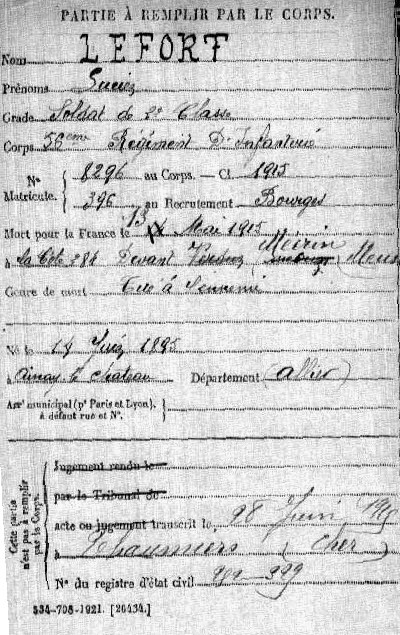 PARTIE À REMPLIR PAR LE CORPS.
Nom LEFORT
Prénoms Lucien
Grade Soldat de 2e Classe
Corps 56eme Régiment D'Infanterie
No 8296 au Corps. — Cl. 1915
Matricule. 396 au Recrutement Bourges
Mort pour la France le 13 Mai 1915
à la Cote 284 Devant (Meuse
Genre de mort Tué à l'ennemi
Né le 1895
à Ainay le chateau Département (Allier)
Arrt municipal (pr Paris et Lyon),
à défaut rue et No.
Cette partie
n'est pas à remplir
par le Corps.
Jugement rendu le
par le Tribunal de
acte ou jugement transcrit le 28 Juin
à Thaumiers (Cher)
No du registre d'état civil
534-708-1921. [26434.]